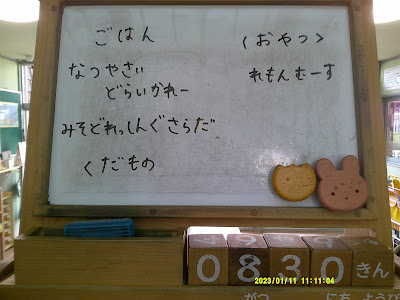 ごはん
なつやさい
どらいかれー
みそどれっしんぐさらだ
くだもの
〈おやつ〉
れもんむーす
0830 きん
がつ にち ようび
2023/01/11 11:11:04